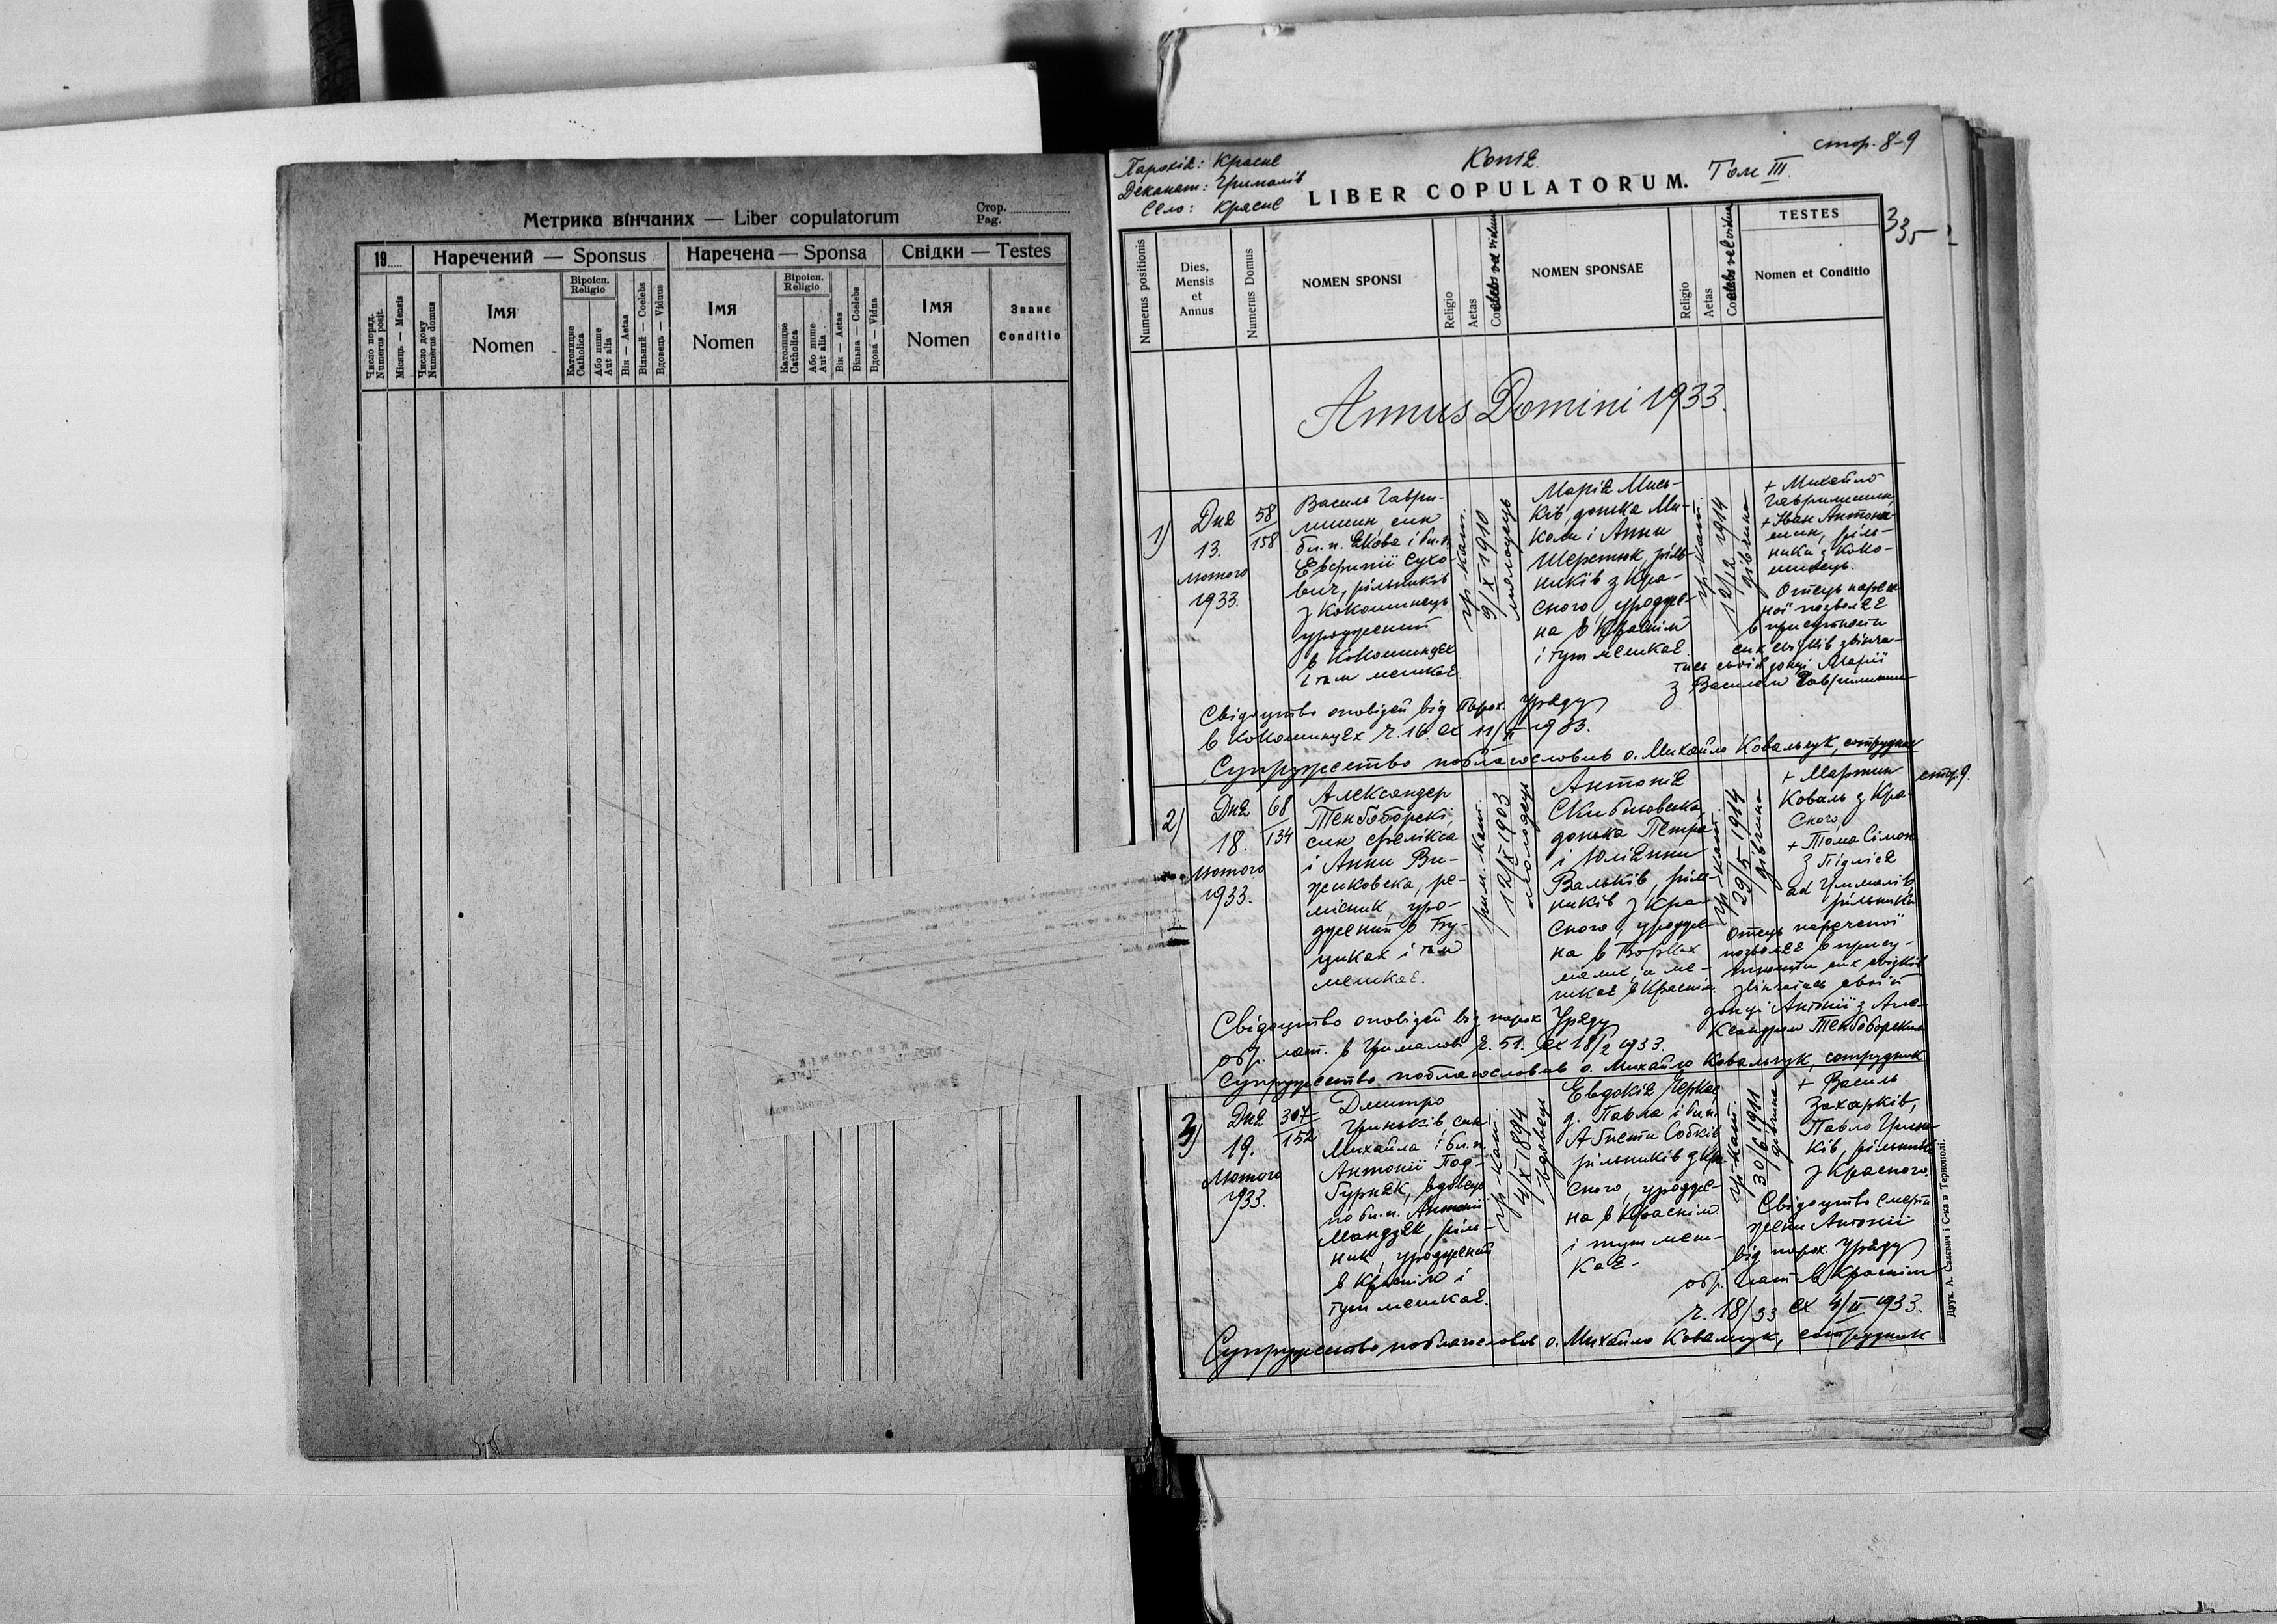 Метрика вінчаних — Liber copulatorum
Стор.
Pag.
19
Наречений — Sponsus
Наречена — Sponsa
Свідки — Testes
Число поряд.
Numerus posit.
Місяць — Mensis
Число дому
Numerus domus
Імя
Nomen
Віроісп.
Religio
Католицке
Catholica
Або инше
Aut alia
Вік — Aetas
Вільний — Coelebs
Вдовець — Viduus
Імя
Nomen
Віроісп.
Religio
Католицке
Catholica
Або инше
Aut alia
Вік — Aetas
Вільна — Coelebs
Вдова — Vidua
Імя
Nomen
Званє
Conditio
Парохія: Красне
Деканат: Грималів
Село: Красне
Копія.
Том III.
стор. 8-9
LIBER COPULATORUM.
Numerus positionis
Dies,
Mensis
et
Annus
Numerus Domus
NOMEN SPONSI
Religio
Aetas
Coelebs vel viduus
NOMEN SPONSAE
Religio
Aetas
Coelebs vel vidua
TESTES
Nomen et Conditio
Annus Domini 1933.
1)
Дня
13.
лютого
1933.
58
158
Василь Гаври-
лишин син
бл. п. Якова і бл. п.
Евфрозії Сухо-
вич, рільників
з Кокошинець
уроджений
в Кокошинцях
і там мешкає.
гр.-кат.
9/X 1910
молодець
Марія Мись-
ків, донька Ми-
коли і Анни
Шеремок, ріль-
ників з Кра-
сного, уродже-
на в Краснім
і тут мешкає.
гр.-кат.
12/12 1914
дівчина
+ Михайло
Гаврилишин,
+ Іван Антони-
шин, ріль-
ники з Коко-
шинець.
Отець нарече-
ної позваляє
в присутности
сих свідків звінча-
тись своїй донці Марії
з Василем Гаврилишин
Свідоцтво оповідей від Парох. Уряду
в Кокошинцях ч. 16. ex 11/II 1933.
Супружество поблагословив о. Михайло Ковальчук, сотрудник
2)
Дня
18.
лютого
1933.
68
134
Александер
син Фелікса
і Анни Ви-
жиковска, ре-
місник, уро-
джений в Бу-
цках і там
мешкає.
рим.-кат.
12/X 1903
молодець
Антонія
Скибньовска,
донька Петра
і Юліянни
Вальків, ріль-
ників з Кра-
сного, уродже-
на в Борках
малих, а ме-
шкає в Краснім.
гр.-кат.
29/5 1914
дівчина
+ Мартин
Коваль з Кра-
сного,
+ Тома Сімон
з Підлісся
ad Грималів
рільники
Отець нареченої
позваляє в прису-
тности сих свідків
звінчатись своїй
донці Антонії з Але-
ксандром
стор. 9.
Свідоцтво оповідей від парох. Уряду
обр. лат. в Грималові ч. 51. ex 18/2 1933.
Супружество поблагословив о. Михайло Ковальчук, сотрудник
3)
Дня
19.
Лютого
1933.
307
152
Дмитро
Гриньків, син
Михайла і бл. п.
Антонії Под-
гурняк, вдовець
по бл. п. Антонії
Мандзяк, ріль-
ник, уроджений
в Краснім і
тут мешкає.
гр.-кат.
4/X 1894
вдовець
Евдокія Черкас
д. Павла і бл. п.
Собків
рільників з Кра-
сного, уродже-
на в Краснім
і тут меш-
кає.
гр.-кат.
30/6 1911
дівчина
+ Василь
Захарків,
Павло Гринь-
ків, рільники
з Красного.
Свідоцтво смерти
жени Антонії
від парох. Уряду
обр. лат. в Краснім
ч. 18/33 ex 4/II 1933.
Супружество поблагословив о. Михайло Ковальчук, сотрудник
Друк. А. Салевич і С-ка в Тернополі.